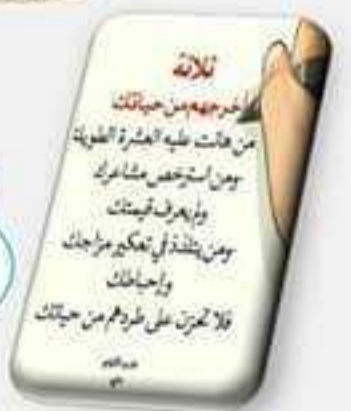 ثلاثة
أخرجهم من حياتك
من هانت عليه العشرة الطويلة
ومن استرخص مشاعرك
ولم يعرف قيمتك
ومن يتلذذ في تعكير مزاجك
وإحباطك
فلا تحزن على طردهم من حياتك